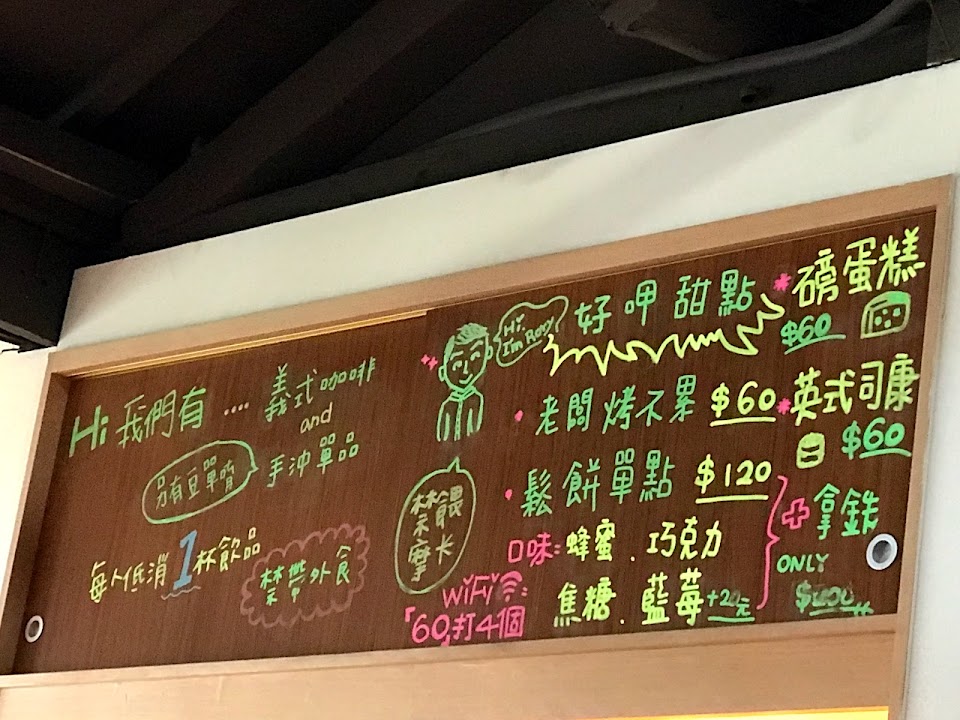 Hi 我們有 .... 義式咖啡
and
手沖單品
另有豆單唷
每人低消1杯飲品
禁帶外食
Hi, I'm Rory
禁餵摩卡
WiFi:
「60」打4個
好呷甜點
老闆烤不累 $60
鬆餅單點 $120
口味:蜂蜜、巧克力
焦糖、藍莓+20元
磅蛋糕
$60
英式司康
$60
+拿鉄
ONLY